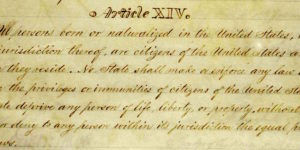 Article XIV.
All persons born or naturalized in the United States,
jurisdiction thereof, are citizens of the United States a
they reside. No State shall make or enforce any law
the privileges or immunities of citizens of the United States
deprive any person of life, liberty, or property, without
deny to any person within its jurisdiction the equal p